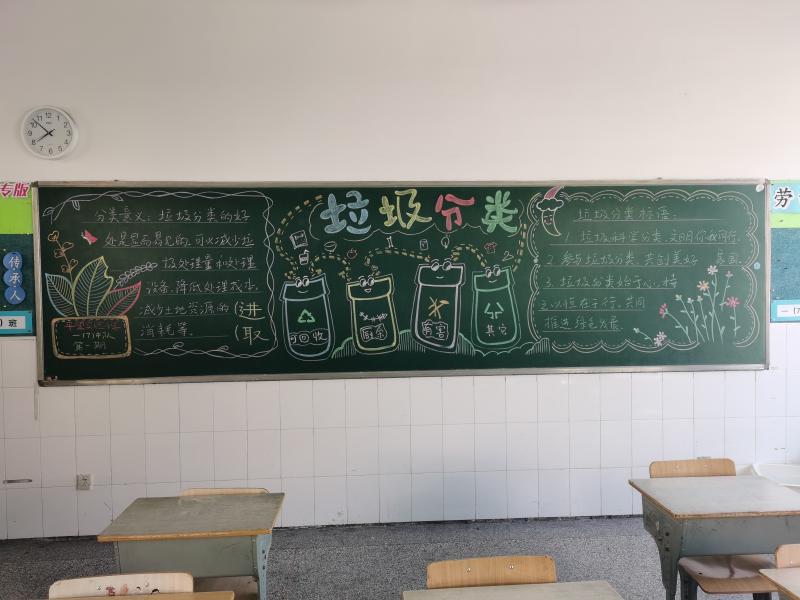 专版
传承人
班
垃圾分类
分类意义：垃圾分类的好
处是显而易见的，可以减少垃
圾处理量和处理
设备，降低处理成本，
减少土地资源的
消耗等。
（进取）
一（7）中队
第一期
可回收
厨余
有害
其它
垃圾分类标语：
1. 垃圾科学分类，文明你我同行
2. 参与垃圾分类，共创美好家园
3. 垃圾分类始于心，持
之以恒在于行，共同
推进绿色发展。
劳
一（7